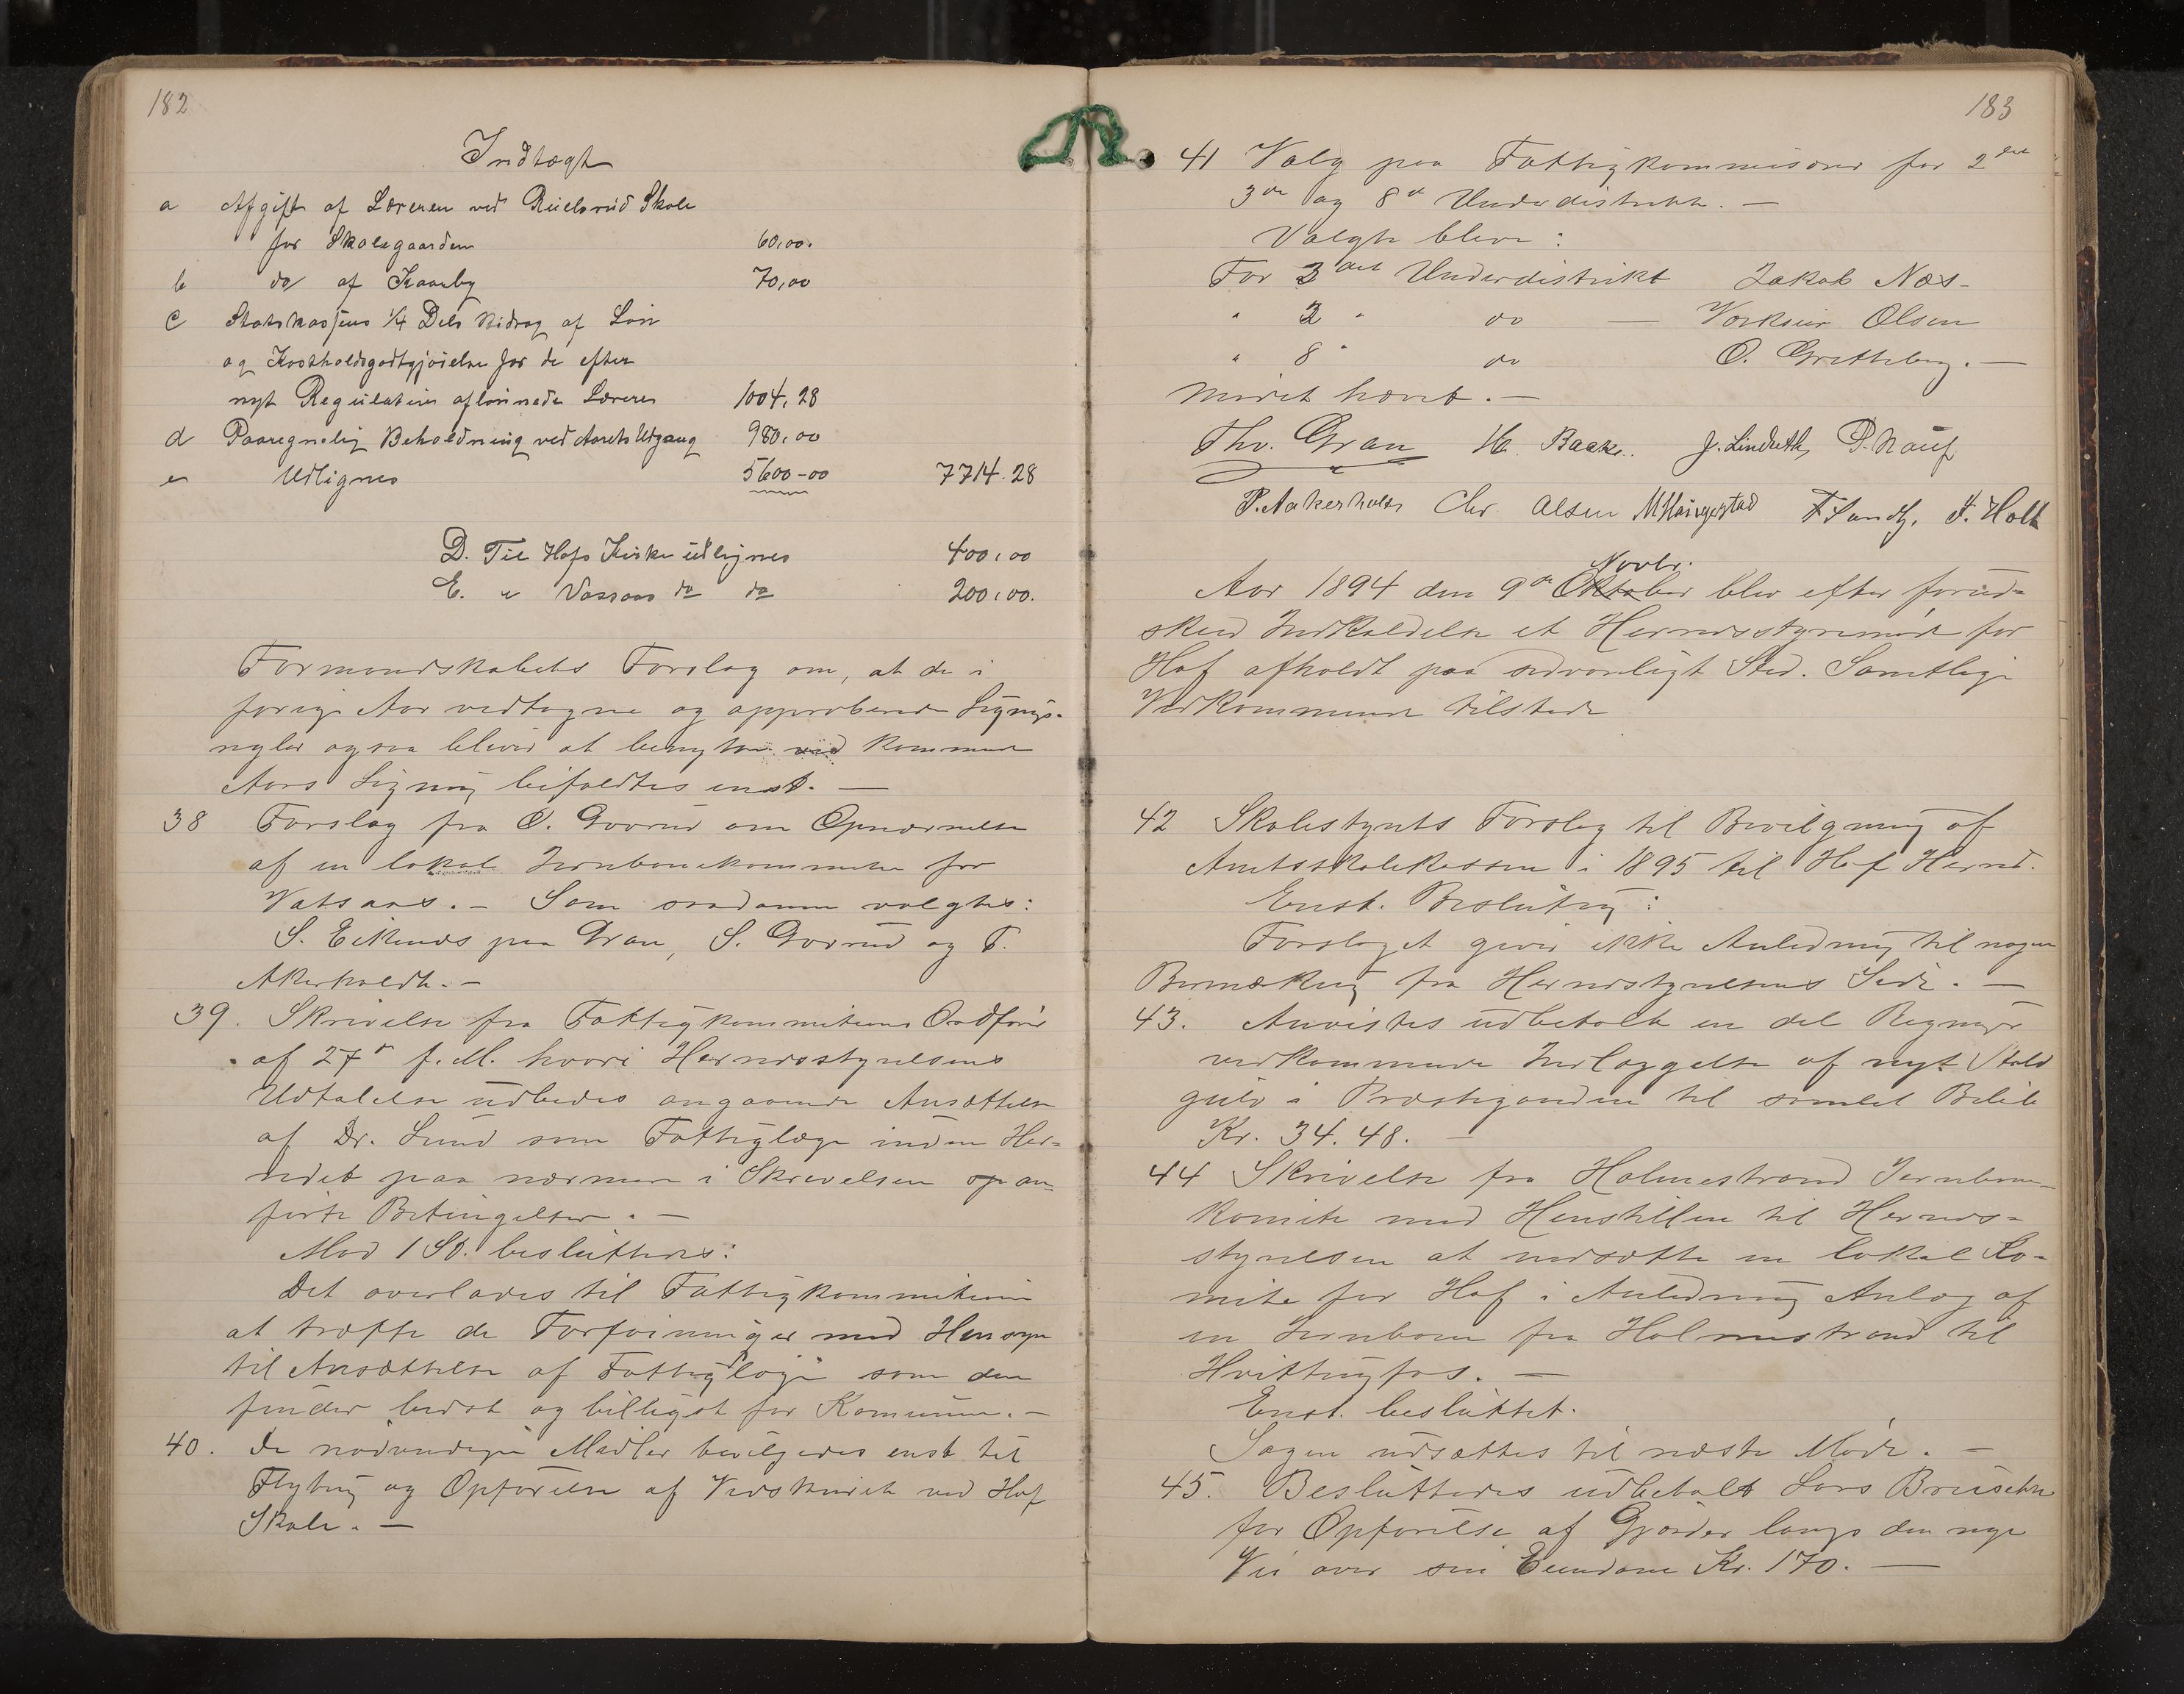 182
Indtægt
a Afgift af Læreren ved Ruelsrud Skole
for Skolegaarden 60,00.
b do af Kaarby 70,00
c Statskassens 1/4 Dels Bidrag af Løn
og Kostholdsgodtgjørelse for de efter
nyt Regulativ aflønnede Lærere 1004,28
d Paaregnelig Beholdning ved Aarets Udgang 980,00
e Udlignes 5600-00 7714.28
D. Til Hofs Kirke udlignes 400,00
E. " Vassaas do do 200,00.
Formandskabets Forslag om, at de i
forrige Aar vedtagne og approberede Lignings-
regler ogsaa bliver at benytte ved kommende
Aars Ligning bifaldtes enst. —
38 Forslag fra O. Govrud om Opnævnelse
af en lokal Jernbanekommite for
Vassaas. — Som saadanne valgtes:
S. Eikenæs paa Gran, S. Govrud og P.
Akerholdt. —
39. Skrivelse fra Fattigkommitions Ordfører
af 27de f.M. hvori Herredsstyrelsens
Udtalelse udbedes angaaende Ansættelse
af Dr. Lund som Fattiglæge inden Her-
redet paa nærmere i Skrivelsen op an-
førte Betingelser. —
Mod 1 St. besluttedes:
Det overlades til Fattigkommitionen
at træffe de Forføininger med Hensyn
til Ansættelse af Fattiglæge som den
finder bedst og billigst for Kommunen. —
40. De nødvendige Midler bevilgedes enst til
Flytning og Opførelse af Vedskuret ved Hof
Skole. —
183
41 Valg paa Fattigkommisærer for 2det
3die og 8de Underdistrikt. —
Valgte bleve:
For 3det Underdistrikt Jakob Næs —
" 2 " do — Olsen
" 8 " do O. Gretteberg. —
Mødet hævet. —
Thv. Gran H. Baak. J. Lindseth,
P. Aakerholdt Chr Olsen M Haugestad F Sundby. F. Holt
Novbr.
Aar 1894 den 9de Oktober blev efter forud-
skeed Indkaldelse et Herredsstyremøde for
Hof afholdt paa sædvanligt Sted. Samtlige
Vedkommende tilstede
42 Skolestyrets Forslag til Bevilgning af
Amtsskolekassen i 1895 til Hof Herred.
Enst. Beslutning:
Forslaget giver ikke Anledning til nogen
Bemærkning fra Herredsstyrelsens Side. —
43. Anvistes udbetalt en del Regninger
vedkommende Indlæggelse af nyt Stald
gulv i Præstegaarden til samlet Beløb
Kr. 34.48. —
44 Skrivelse fra Holmestrand Jernbane-
komite med Henstillen til Herreds-
styrelsen at nedsætte en lokal Ko-
mite for Hof i Anledning Anlæg af
en Jernbane fra Holmestrand til
Hvittingfos. —
Enst. besluttet.
Sagen udsættes til næste Møde. —
45. Besluttedes udbetalt Lars Bruserud
for Opførelse af Gjærder langs den nye
Vei over sin Eiendom Kr. 170. —